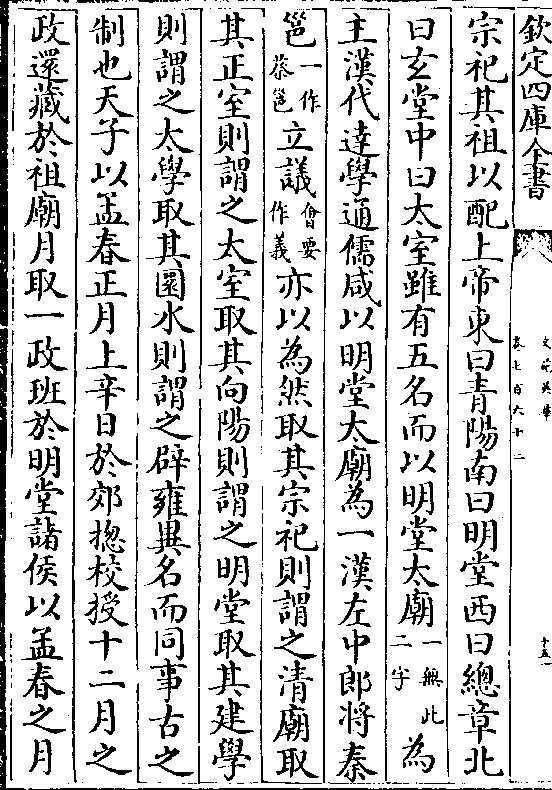 欽定四庫全書
文苑英華
卷七百六十二
十五
宗祀其祖以配上帝東曰青陽南曰明堂西曰總章北
曰玄堂中曰太室雖有五名而以明堂太廟一無此二字為
主漢代達學通儒咸以明堂太廟為一漢左中郎將秦
邕一作蔡邕立議會要作義亦以為然取其宗祀則謂之清廟取
其正室則謂之太室取其向陽則謂之明堂取其建學
則謂之太學取其圜水則謂之辟雍異名而同事古之
制也天子以孟春正月上辛日於郊揔校授十二月之
政還藏於祖廟月取一政班於明堂諸侯以孟春之月